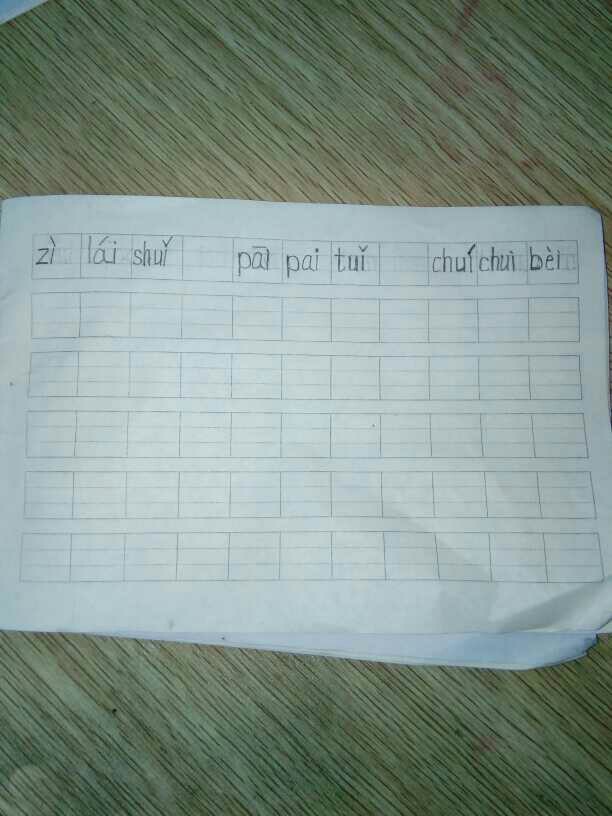 zì lái shuǐ pāi pai tuǐ chuí chui bèi